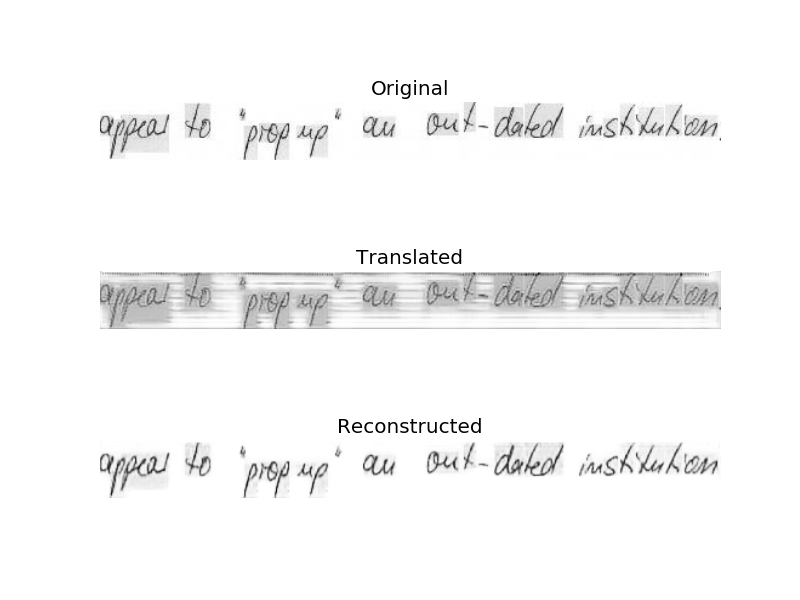 Original
appear to "prop up" an out-dated institution.
Translated
appear to "prop up" an out-dated institution.
Reconstructed
appear to "prop up" an out-dated institution